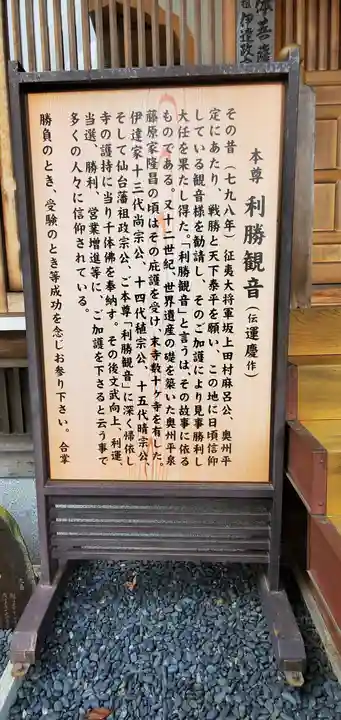 本尊 利勝観音(伝運慶作)
その昔(七九八年)征夷大将軍坂上田村麻呂公、奥州平
定にあたり、戦勝と天下泰平を願い、この地に日頃信仰
している観音様を勧請し、そのご加護により見事勝利し
大任を果たし得た。「利勝観音」と言うは、その故事に依る
ものである。又十二世紀、世界遺産の礎を築いた奥州平泉
藤原家隆昌の頃はその庇護を受け、末寺数十ヶ寺を有した。
伊達家十三代尚宗公、十四代稙宗公、十五代晴宗公、
そして仙台藩祖政宗公、ご本尊「利勝観音」に深く帰依し
寺の護持に当り千体佛を奉納す。その後文武向上、利運、
当選、勝利、営業増進等に、ご加護を下さると云う事で
多くの人々に信仰されている。
勝負のとき、受験のとき等成功を念じお参り下さい。 合掌
伊達政